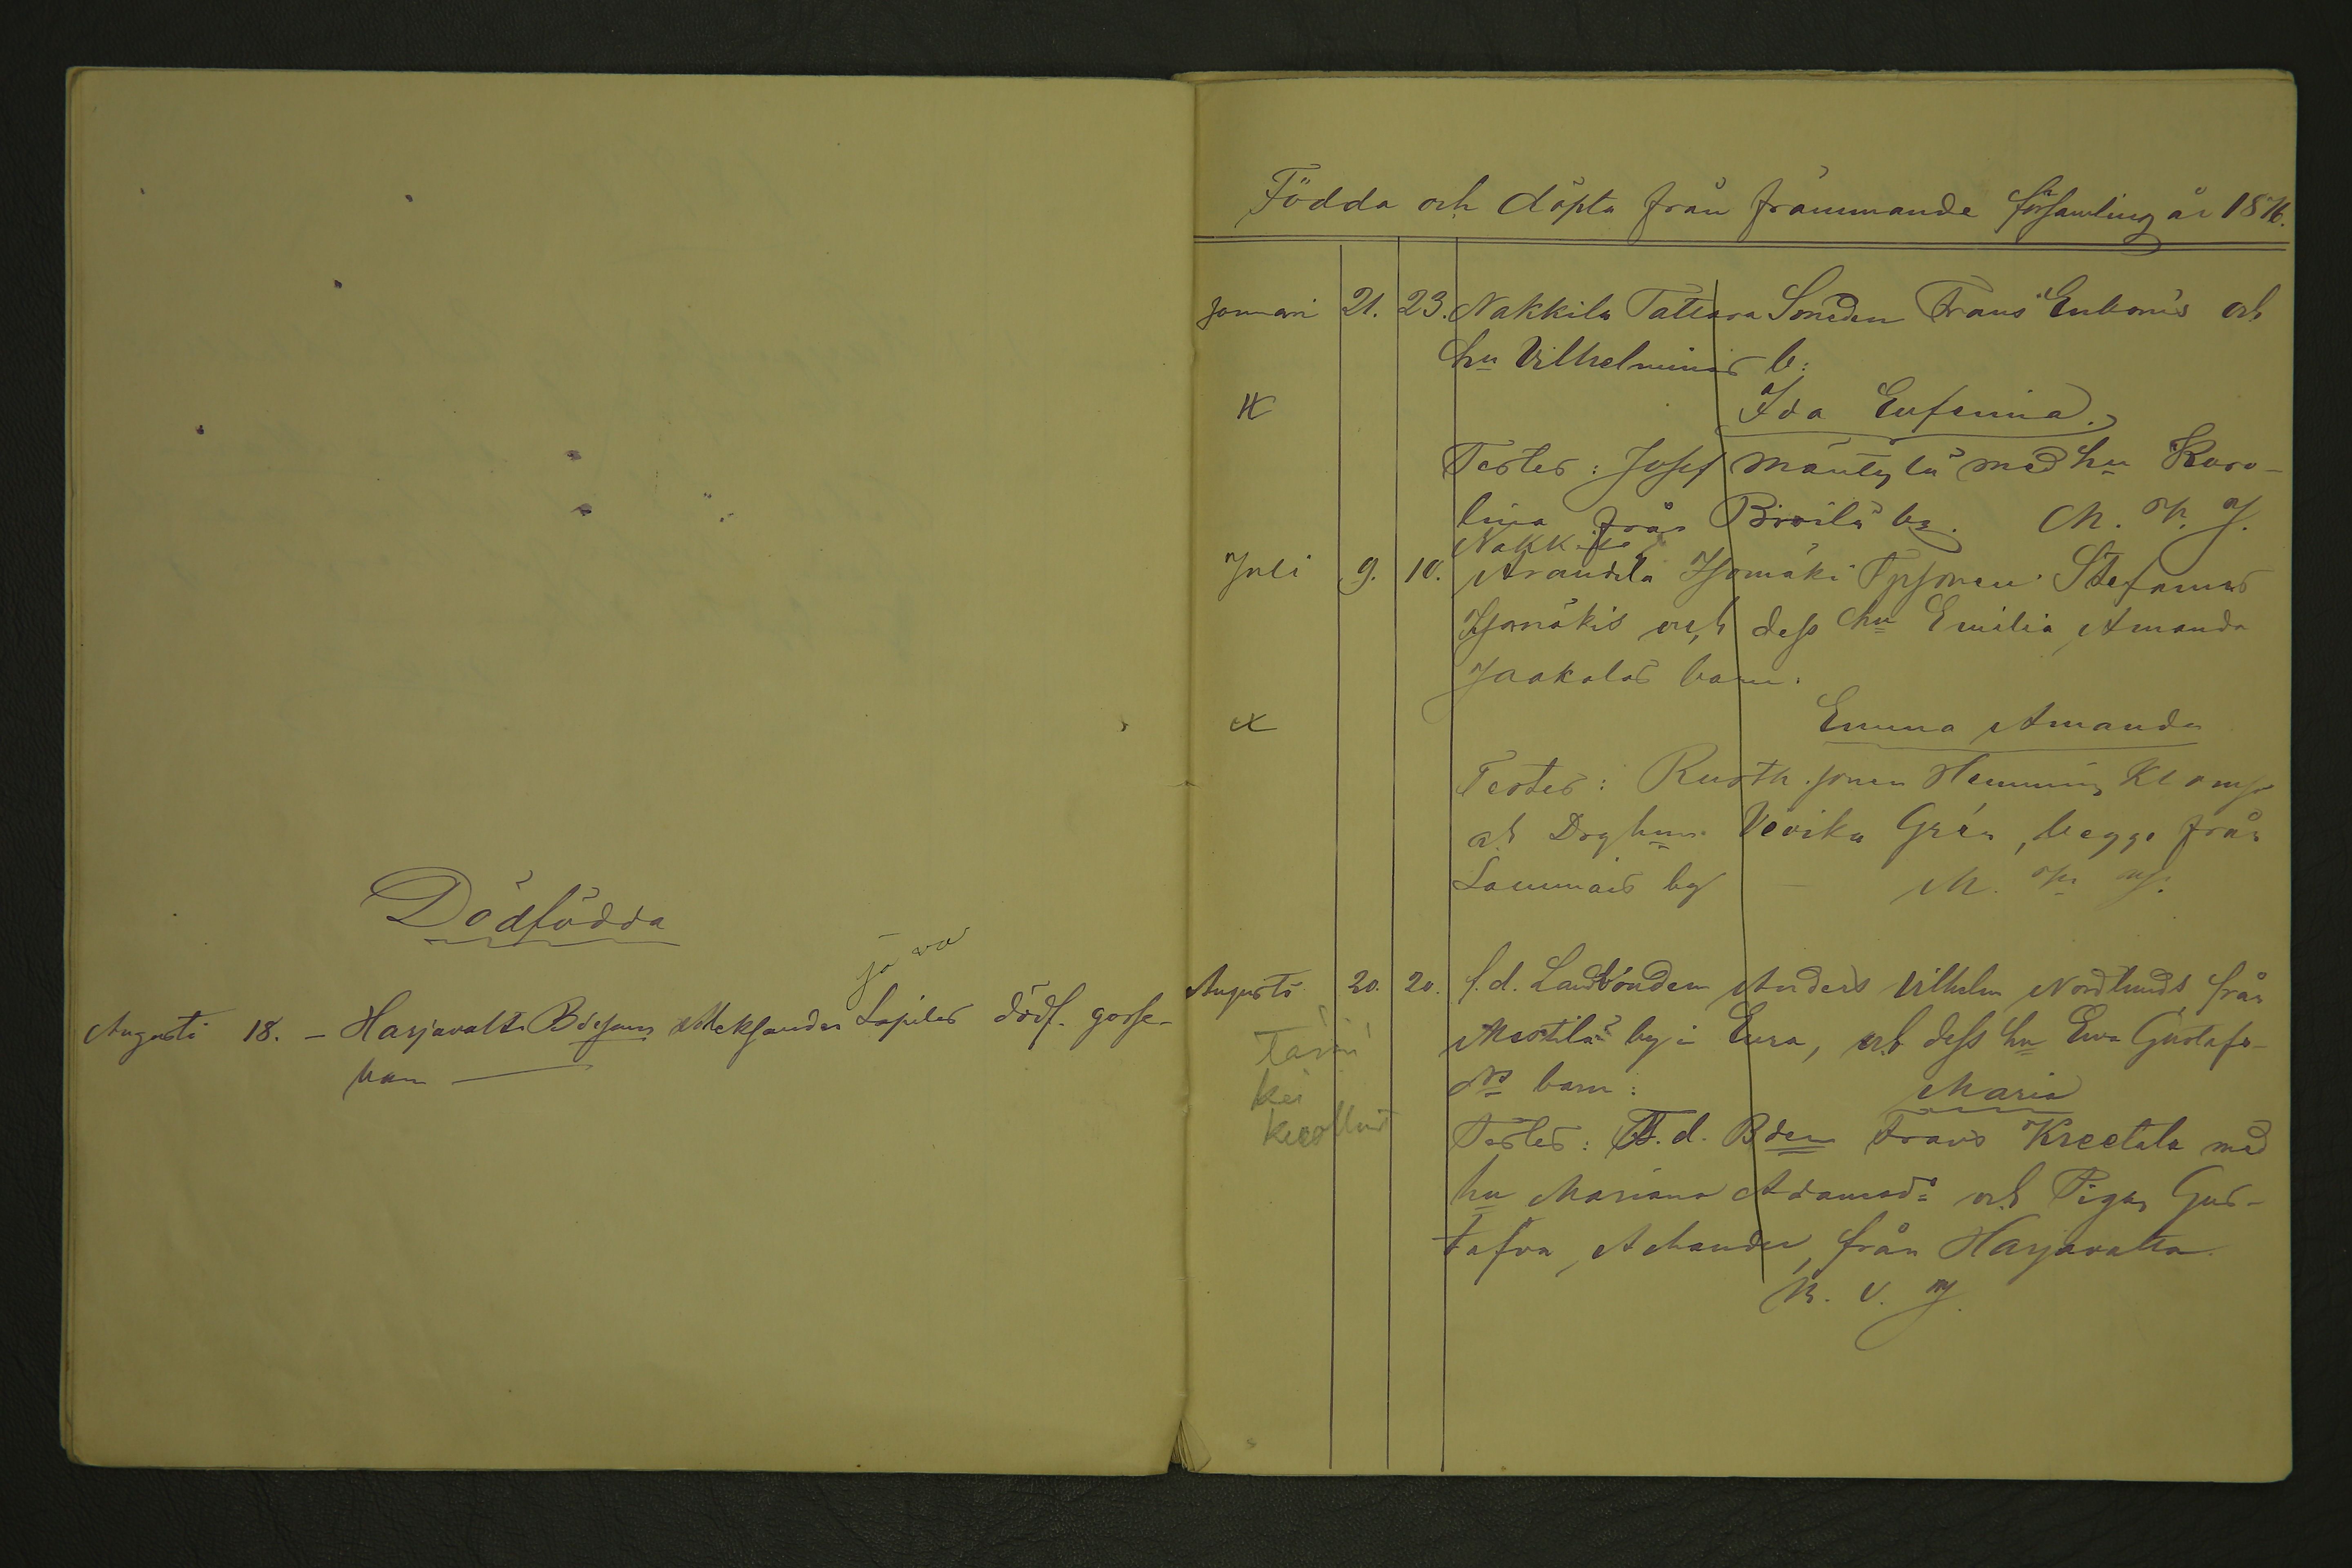 Dödfödda
Augusti 18. — Harjavalta Bdesons Aleksander Lapilas dödf. gosse-
barn
Födda och döpta från främmande församling år 1876.
Januari 21. 23. Nakkila Tattara Smeden Frans och
hu Vilhelminas b:
Ida Eufemia.
Testes: Josef Mäntylä med hu Karo-
lina från Pirilä by.
Nakkila
Juli 9. 10. Arantila Isomäki Stefanus
Isomäkis och dess hu Emilia Amanda
Jaakolas barn.
Emma Amanda
Testes: Rusth.sonen Hemming
och Veviku Grén, begge från
Lammais by M.
Augusti 20. 20. f.d. Landbonden Anders Vilhelm Nordlunds från
Mestilä by i Eura, och dess hu Eva Gustafs-
drs barn: Maria
Testes: F.d. Bden Frans Kreetala med
hu Mariana Adamsdr och Pigan Gus-
tafva Achander, från Harjavalta.